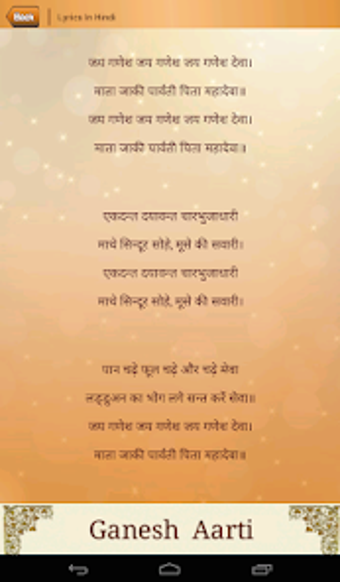 Back
Lyrics In Hindi
जय गणेश जय गणेश जय गणेश देवा।
माता जाकी पार्वती पिता महादेवा॥
जय गणेश जय गणेश जय गणेश देवा।
माता जाकी पार्वती पिता महादेवा॥
एकदन्त दयावन्त चारभुजाधारी
माथे सिन्दूर सोहे, मूसे की सवारी।
एकदन्त दयावन्त चारभुजाधारी
माथे सिन्दूर सोहे, मूसे की सवारी।
पान चढ़े फूल चढ़े और चढ़े मेवा
लड्डुअन का भोग लगे सन्त करें सेवा॥
जय गणेश जय गणेश जय गणेश देवा।
माता जाकी पार्वती पिता महादेवा॥
Ganesh Aarti